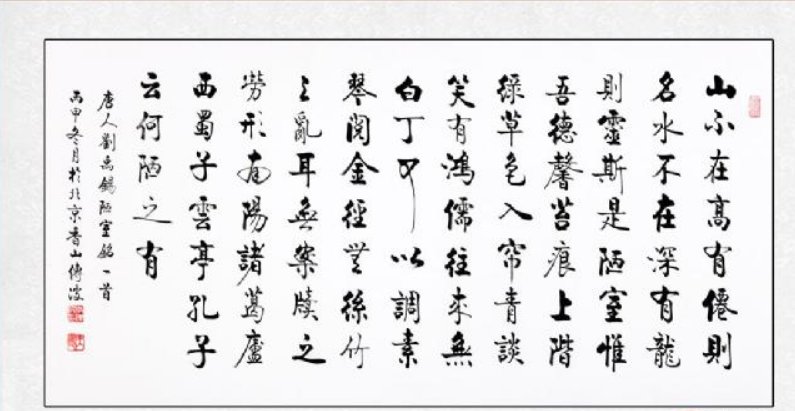 山不在高有僊則
名水不在深有龍
則靈斯是陋室惟
吾德馨苔痕上階
綠草色入帘青談
笑有鴻儒往來無
白丁可以調素
琴閱金經無絲竹
之亂耳無案牘之
勞形南陽諸葛廬
西蜀子雲亭孔子
云何陋之有
唐人劉禹錫陋室銘一首
丙申冬月於北京香山傳